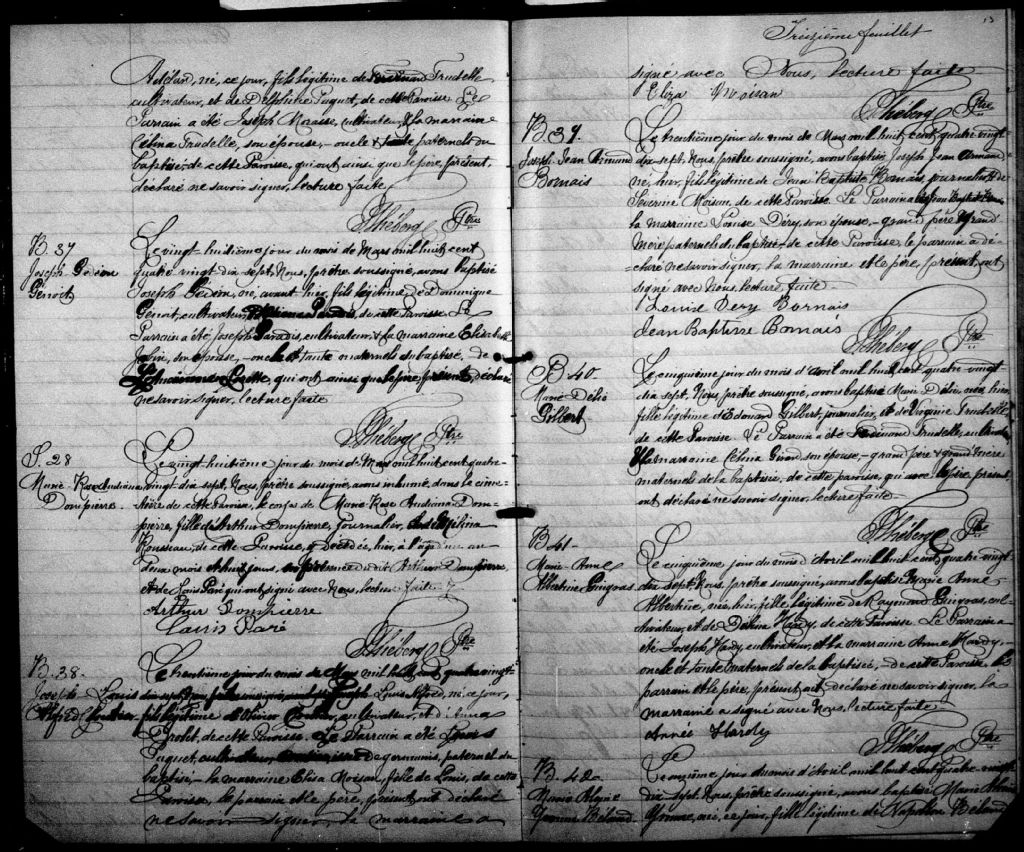 Adélard, né, ce jour, fils légitime de Ferdinand Trudelle
cultivateur, et de Delphine Paquet, de cette Paroisse Le
Parrain a été Joseph Morasse, cultivateur & la marraine
Célina Trudelle, son épouse, - oncle & tante paternels du
baptisé, de cette Paroisse, qui ont ainsi que le père, présent,
déclaré ne savoir signer, lecture faite
FThéberge Ptre
B. 37
Joseph Gédéon
Génoit
Le vingt huitième jour du mois de Mars mil huit cent
quatre vingt dix sept, Nous, prêtre soussigné, avons baptisé
Joseph Gédéon, né, avant hier, fils légitime de Dominique
Genoit, cultivateur, Paradis, de cette Paroisse Le
Parrain a été Joseph Paradis, cultivateur, & la marraine Elizabeth
son épouse, - oncle et tante maternels du baptisé, de
qui ont ainsi que le père, présent, déclaré
ne savoir signer, lecture faite
FThéberge Ptre
S. 28
Marie Rose Audiana
Dompierre
Le vingt huitième jour du mois de Mars mil huit cent quatre-
vingt-dix sept, Nous, prêtre soussigné, avons inhumé, dans le cime-
tière de cette Paroisse, le corps de Marie Rose Audiana Dom-
pierre, fille d'Arthur Dompierre, journalier, et de Mélina
Rousseau, de cette Paroisse, décédée, hier, à l'âge de un an
deux mois et huit jours, en présence dudit Arthur Dompierre,
et de Louis Paré qui ont signé avec Nous, lecture faite
Arthur Dompierre
Louis Paré
FThéberge Ptre
B. 38.
Joseph Louis
Alfred Cloutier
Le trentième jour du mois de Mars mil huit cent quatre vingt-
dix sept, Nous, prêtre soussigné, Joseph Louis Alfred, né, ce jour,
fils légitime cultivateur, et d'Anna
de cette Paroisse, Le Parrain a été Louis
Paquet, cultivateur, cousin germain, paternel du
baptisé - la marraine Eliza Moisan, fille de Louis, de cette
Paroisse, le parrain et le père, présent, ont déclaré
ne savoir signer, la marraine a
13
Treizième feuillet
signé avec Nous, lecture faite
Eliza Moisan
FThéberge Ptre
B 39.
Joseph Jean Armand
Bornais
Le trentième jour du mois de Mars mil huit cent quatre vingt
dix sept, Nous, prêtre soussigné, avons baptisé Joseph Jean Armand
né, hier, fils légitime de Jean Baptiste Bornais, journalier & de
Severine Moisan, de cette Paroisse. Le Parrain a été Jean Baptiste
la marraine Louise Déry, son épouse, - grand père & grand
mère paternels du baptisé - de cette Paroisse, le parrain a dé-
claré ne savoir signer, la marraine et le père, présent, ont
signé avec Nous, lecture faite.
Louise Dery Bornais
Jean Baptiste Bornais
FThéberge Ptre
B 40.
Marie Délia
Gilbert
Le cinquième jour du mois d'avril mil huit cent quatre-vingt-
dix sept, Nous, prêtre soussigné, avons baptisé Marie Délia, née hier
fille légitime d'Edouard Gilbert, journalier, et de Virginie Trudelle
de cette Paroisse Le Parrain a été Ferdinand Trudelle, cultivateur
& la marraine Célina Girard, son épouse, - grand père & grand mère
maternels de la baptisée, de cette paroisse, qui avec le père, présent
ont déclaré ne savoir signer, lecture faite
FThéberge Ptre
B 41.
Marie-Anne
Albertine Gingras
Le cinquième jour du mois d'Avril mil huit cent quatre-vingt
dix sept, Nous, prêtre soussigné, avons baptisé Marie Anne-
Albertine, née, hier, fille légitime de Raymond Gingras, cul-
tivateur, et de Hardy, de cette Paroisse Le Parrain a
été Joseph Hardy, cultivateur, et la marraine Anne Hardy -
oncle et tante maternels de la baptisée, de cette Paroisse le
parrain et le père, présent ont déclaré ne savoir signer, la
marraine a signé avec Nous, lecture faite
Anné Hardy
FThéberge Ptre
B 42
Marie
Béland
Le onzième jour du mois d'Avril mil huit cent quatre vingt
dix sept, Nous, prêtre soussigné, avons baptisé Marie
née, ce jour, fille légitime de Napoléon Béland